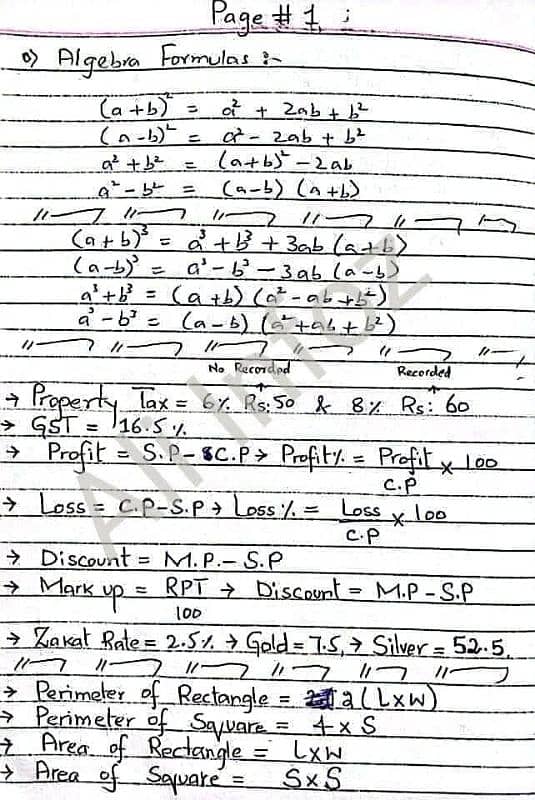 Page # 1 ;
0) Algebra Formulas :-
(a+b)² = a² + 2ab + b²
(a-b)² = a² - 2ab + b²
a² + b² = (a+b)² - 2ab
a² - b² = (a-b) (a+b)
(a+b)³ = a³ + b³ + 3ab (a+b)
(a-b)³ = a³ - b³ - 3ab (a-b)
a³ + b³ = (a+b) (a² - ab + b²)
a³ - b³ = (a-b) (a² + ab + b²)
No Recorded Recorded
→ Property Tax = 6% Rs: 50 & 8% Rs: 60
→ GST = 16.5 %
→ Profit = S.P - C.P → Profit% = Profit × 100
C.P
→ Loss = C.P - S.P → Loss % = Loss × 100
C.P
→ Discount = M.P. - S.P
→ Mark up = RPT → Discount = M.P - S.P
100
→ Zakat Rate = 2.5% → Gold = 7.5, → Silver = 52.5.
→ Perimeter of Rectangle = 2(L×W)
→ Perimeter of Square = 4 × S
→ Area of Rectangle = L×W
→ Area of Square = S×S
Ali Infoz